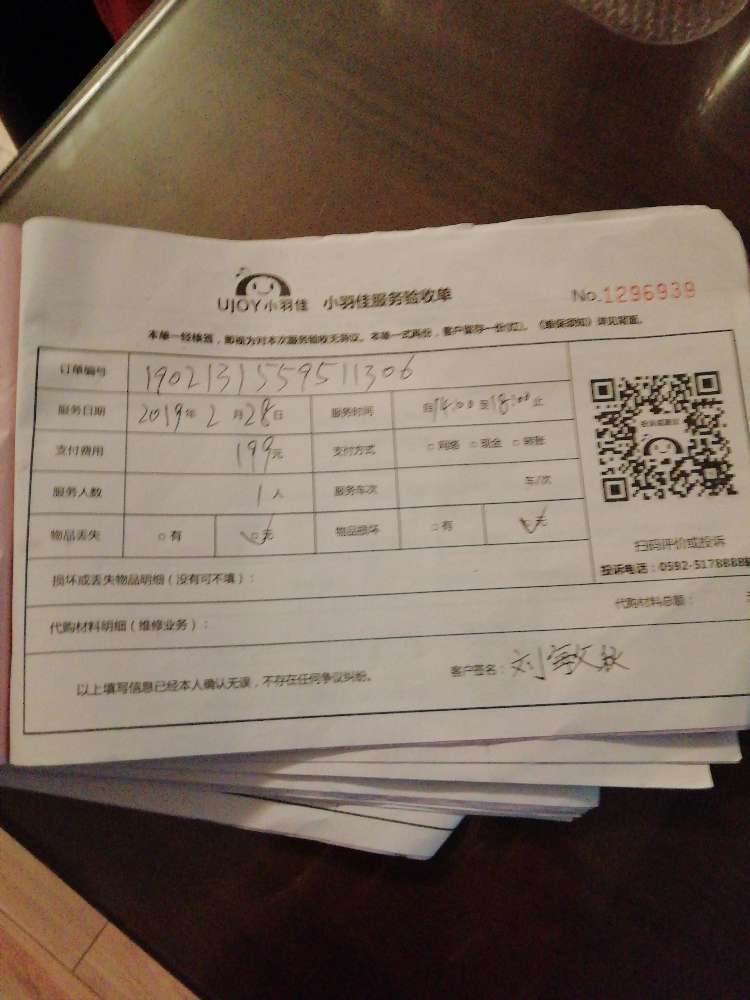 UJOY小羽佳 小羽佳服务验收单 No.1296939
本单一经核签，即视为对本次服务验收无争议。本单一式两份，客户留存一份(红)。《维保须知》详见背面。
订单编号 1902131559511306
服务日期 2019年 2月28日 服务时间 自14:00至18:00止
支付费用 199元 支付方式 □网络 □现金 □转账
服务人数 1人 服务车次 车/次
物品丢失 □有 ☑无 物品损坏 □有 ☑无
扫码评价或投诉
投诉电话：0592-5178888
损坏或丢失物品明细（没有可不填）：
代购材料明细（维修业务）： 代购材料总额：
以上填写信息已经本人确认无误，不存在任何争议纠纷。 客户签名：刘